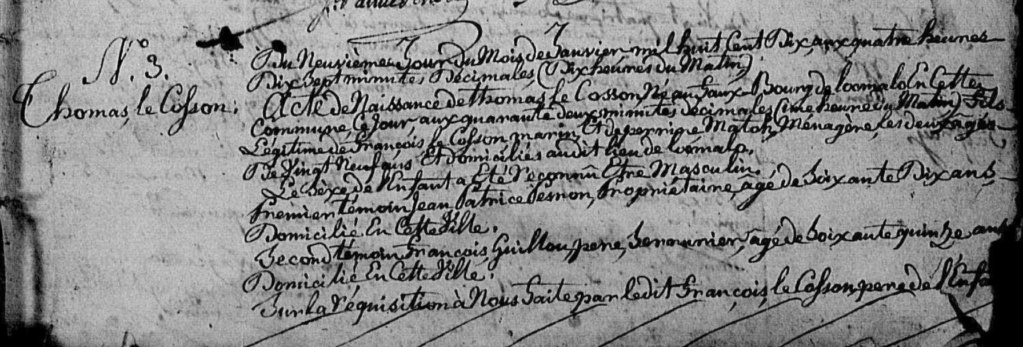 N.° 3.
Thomas, le Cosson.
Du Neuvième Jour du Mois de Janvier mil huit Cent Dix, aux quatre heures
Dix Sept minutes Décimales, (Dix heures du Matin).
Acte de Naissance de Thomas Le Cosson, Né au faux-Bourg de Lomalo En Cette
Commune Ce Jour, aux quarante deux minutes décimales (Une heure du Matin) fils
Légitime de François, le Cosson, marin, Et de perrique Matoh, Ménagère, les deux agés
De Vingt Neuf ans Et Domiciliés audit lieu de Lomalo.
Le Sexe de l'Enfant a Eté Reconnu Etre Masculin.
Premier témoin, Jean Patrice Pesron, Propriétaire, agé de Soixante Dix ans,
Domicilié En Cette Ville.
Second témoin, François, Guillou, pere, agé de Soixante quinze ans
Domicilié En Cette Ville.
Sur la réquisition à Nous faite par ledit François, le Cosson, pere de l'Enfa